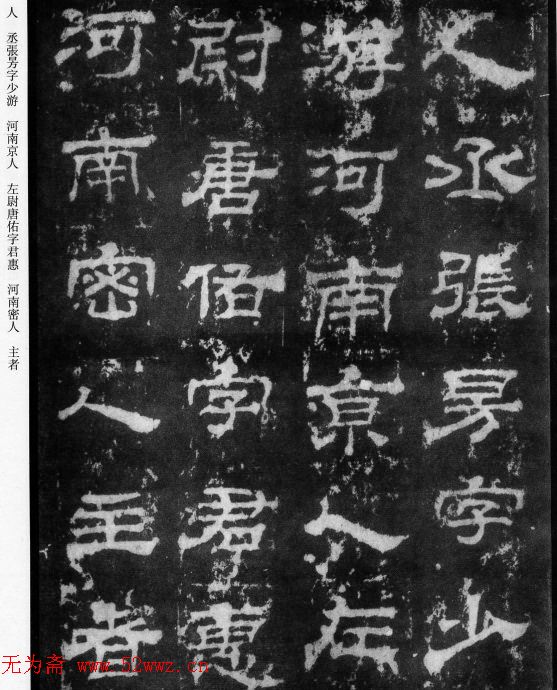 人丞張昮字少
游河南京人左
尉唐佑字君惠
河南密人主者
人 丞張昮字少游 河南京人 左尉唐佑字君惠 河南密人 主者
无为斋 www.52wwz.cn